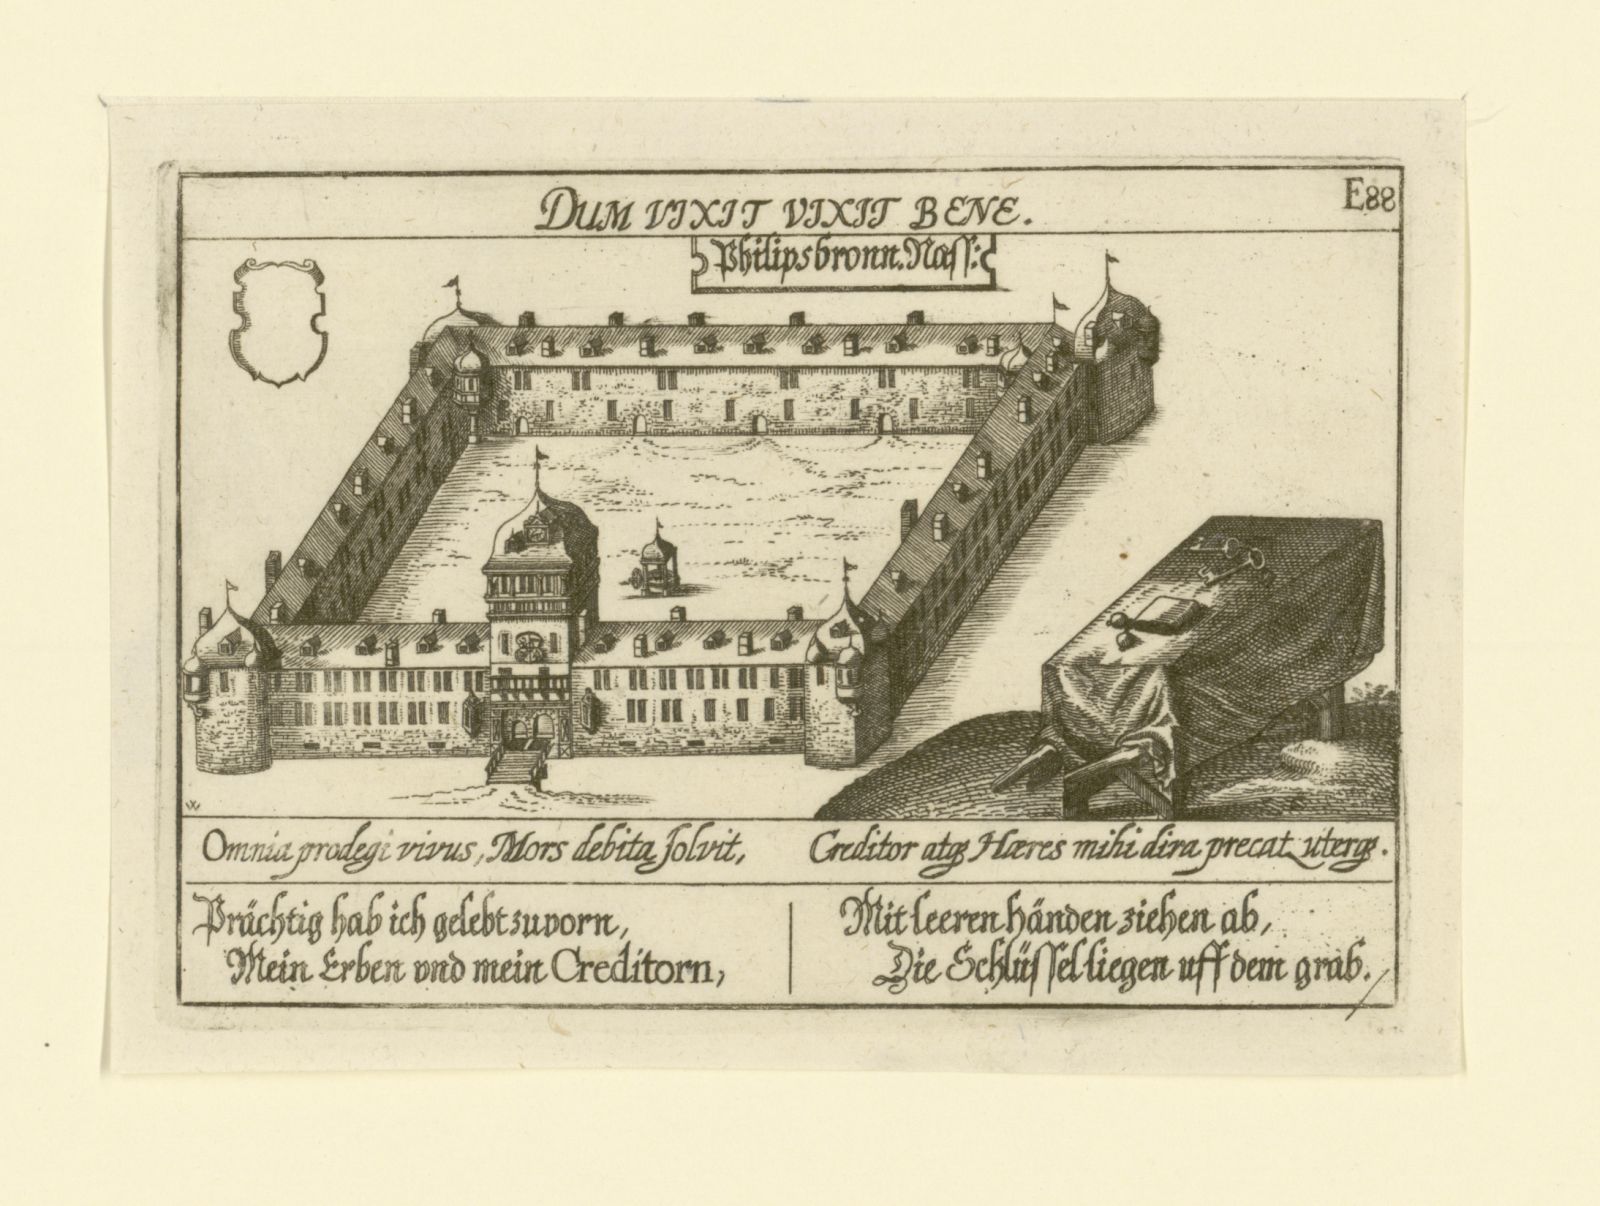 DUM VIXIT VIXIT BENE.
E88
Philipsbronn. Nass:
W
Omnia prodegi vivus, Mors debita solvit,
Creditor atqȝ Hæres mihi dira precat uterqȝ.
Prächtig hab ich gelebt zuvorn,
Mein Erben vnd mein Creditorn,
Mit leeren händen ziehen ab,
Die Schlüssel liegen uff dem grab.